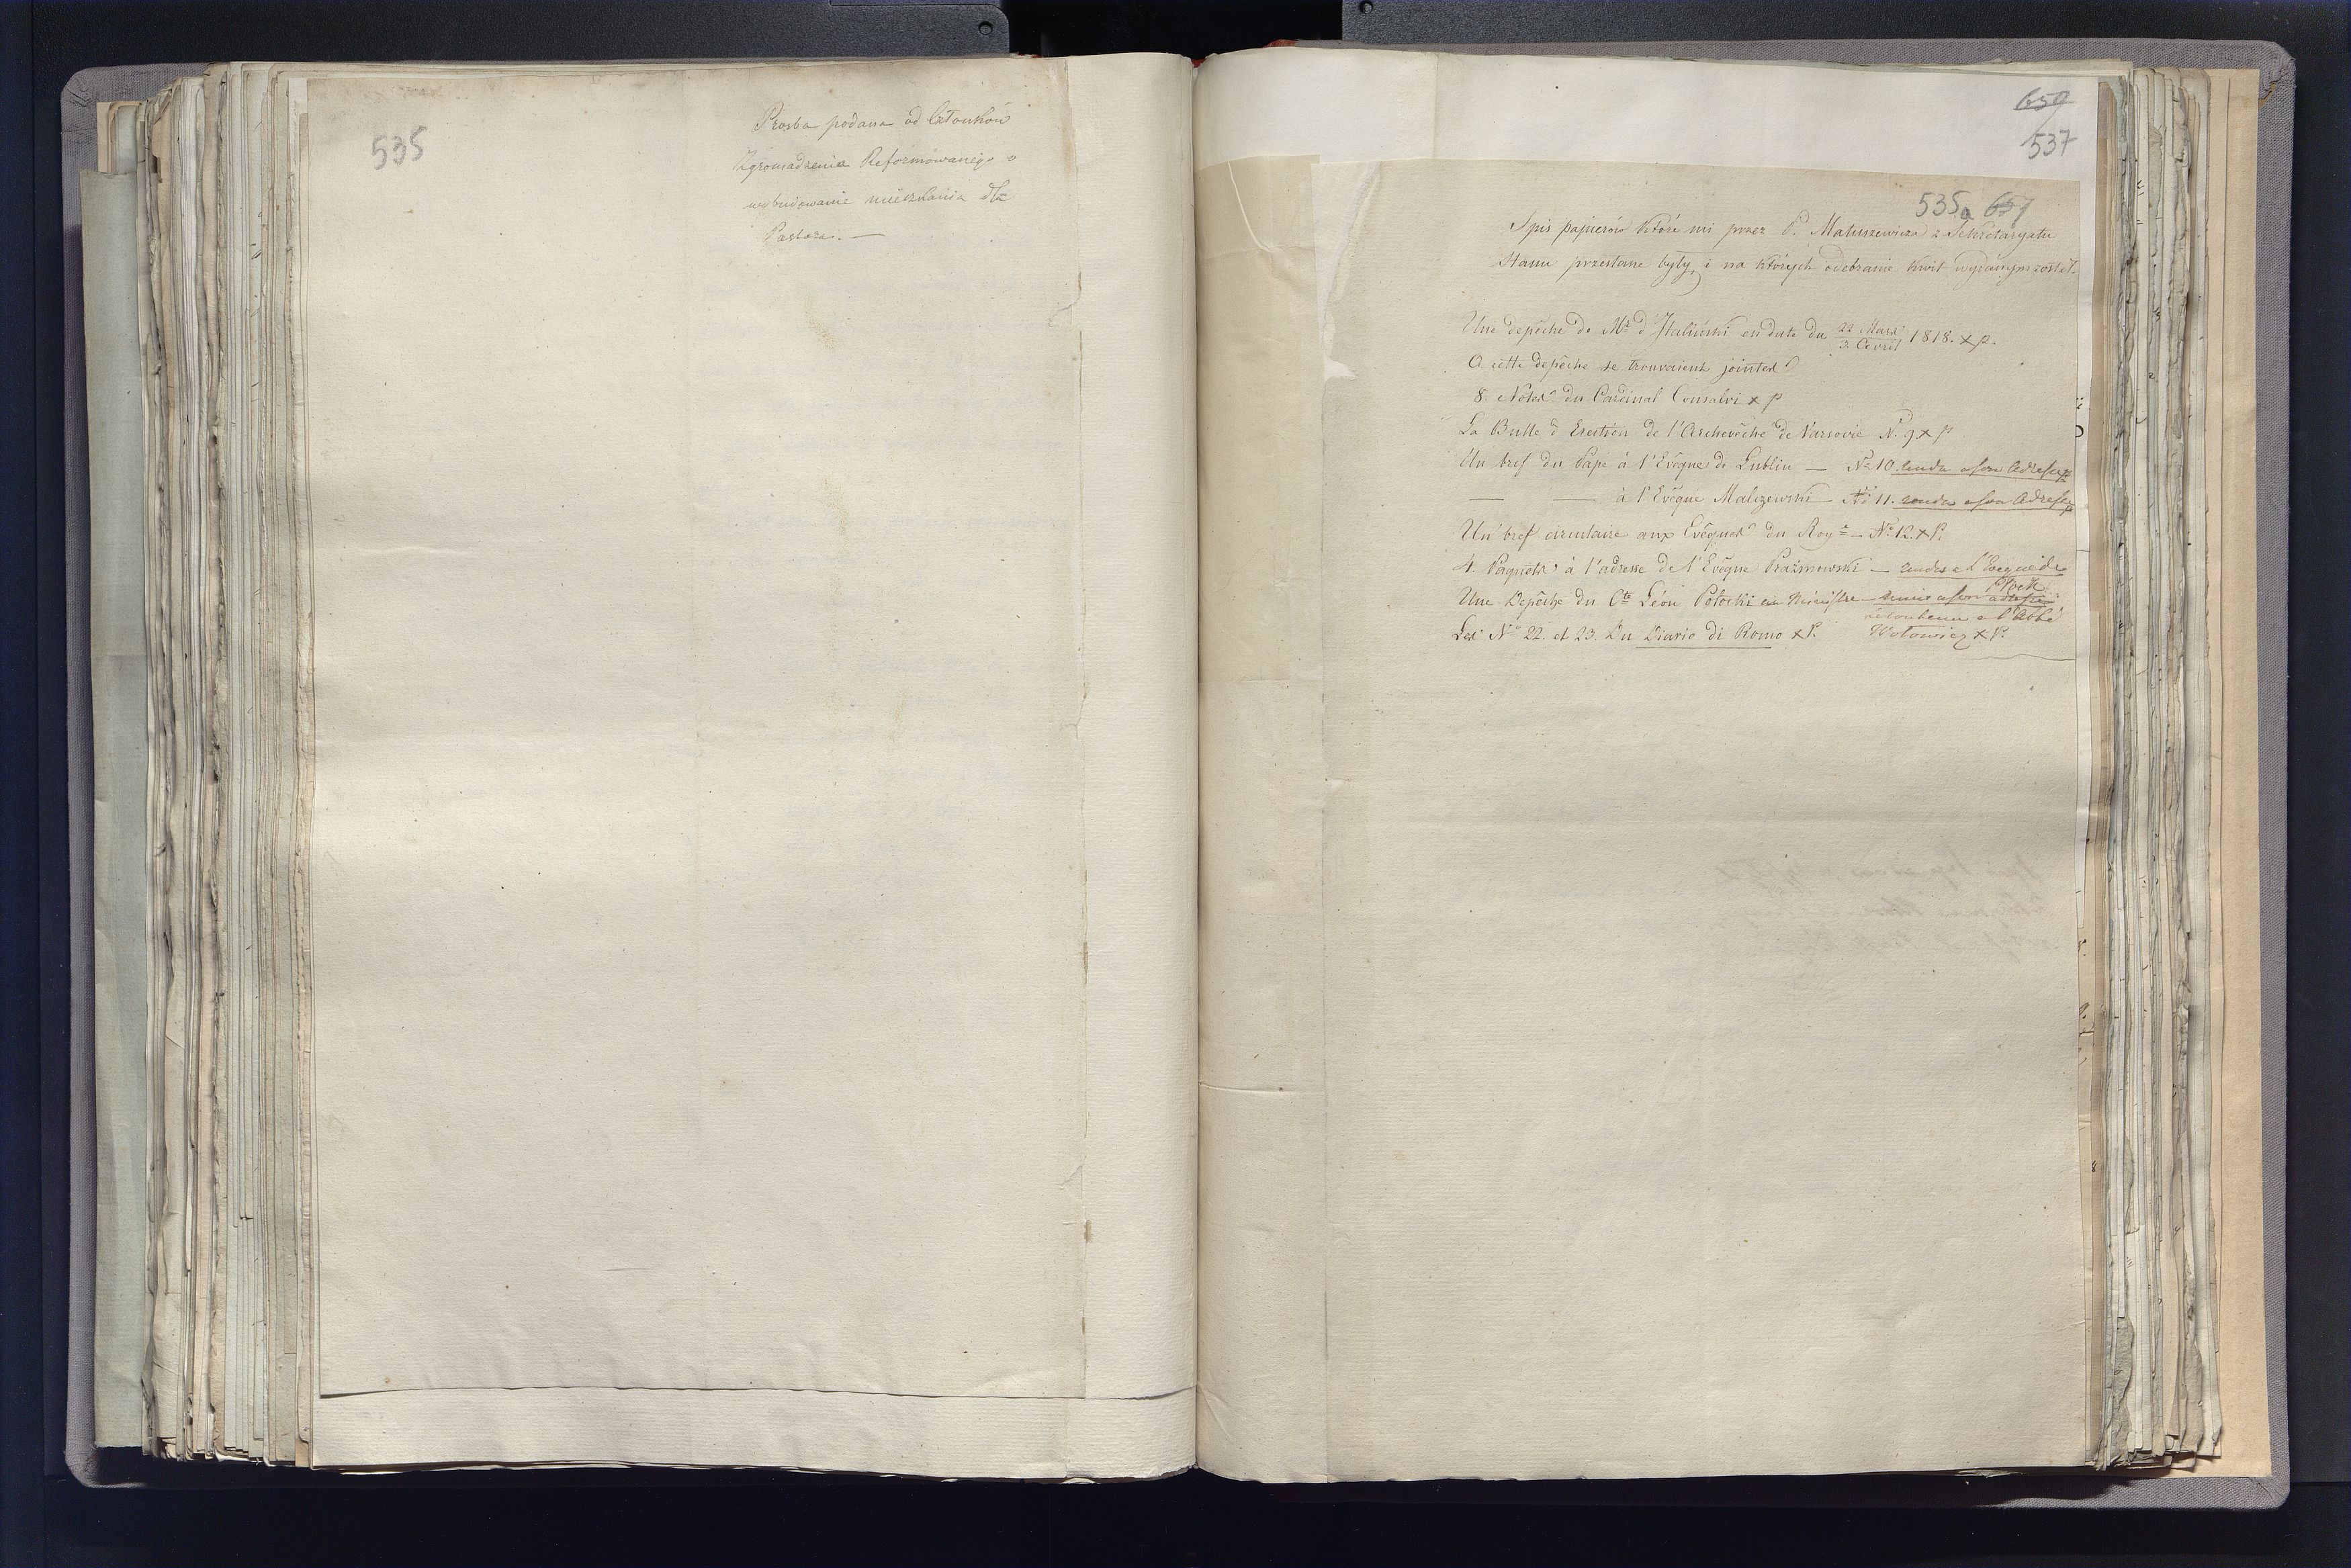 535
Prosba podana od Członków
Zgromadzenia Reformowanego o
wybudowanie mieszkania dla
Pastora. —
659
537
535a 657
Spis papierów które mi przez P. Matuszewicza z Sekretaryatu
Stanu przesłane były, i na których odebranie kwit wydanym został.
Une depêche de Mr. d'Italinski en date du 22 Mars / 3 Avril 1818. x p.
A cette depêche se trouvaient jointes
8. Notes du Cardinal Consalvi x p
La Bulle d'Erection de l'Archevêché de Varsovie No. 9 x p
Un bref du Pape à l'Evêque de Lublin — No 10. rendu a son Adresse
— — à l'Evêque Malczewski — No 11. rendu a son Adresse
Un bref circulaire aux Evêques du Roye — No. 12. x P.
4. Paquets à l'adresse de l'Evêque Prażmowski — rendus a l'Eveque de
Plock
Une Depêche du Cte Léon Potocki au Ministre — remis a son adresse
a l'Abbé
Les No 22. et 23. Du Diario di Romo x P. Wołowicz x P.